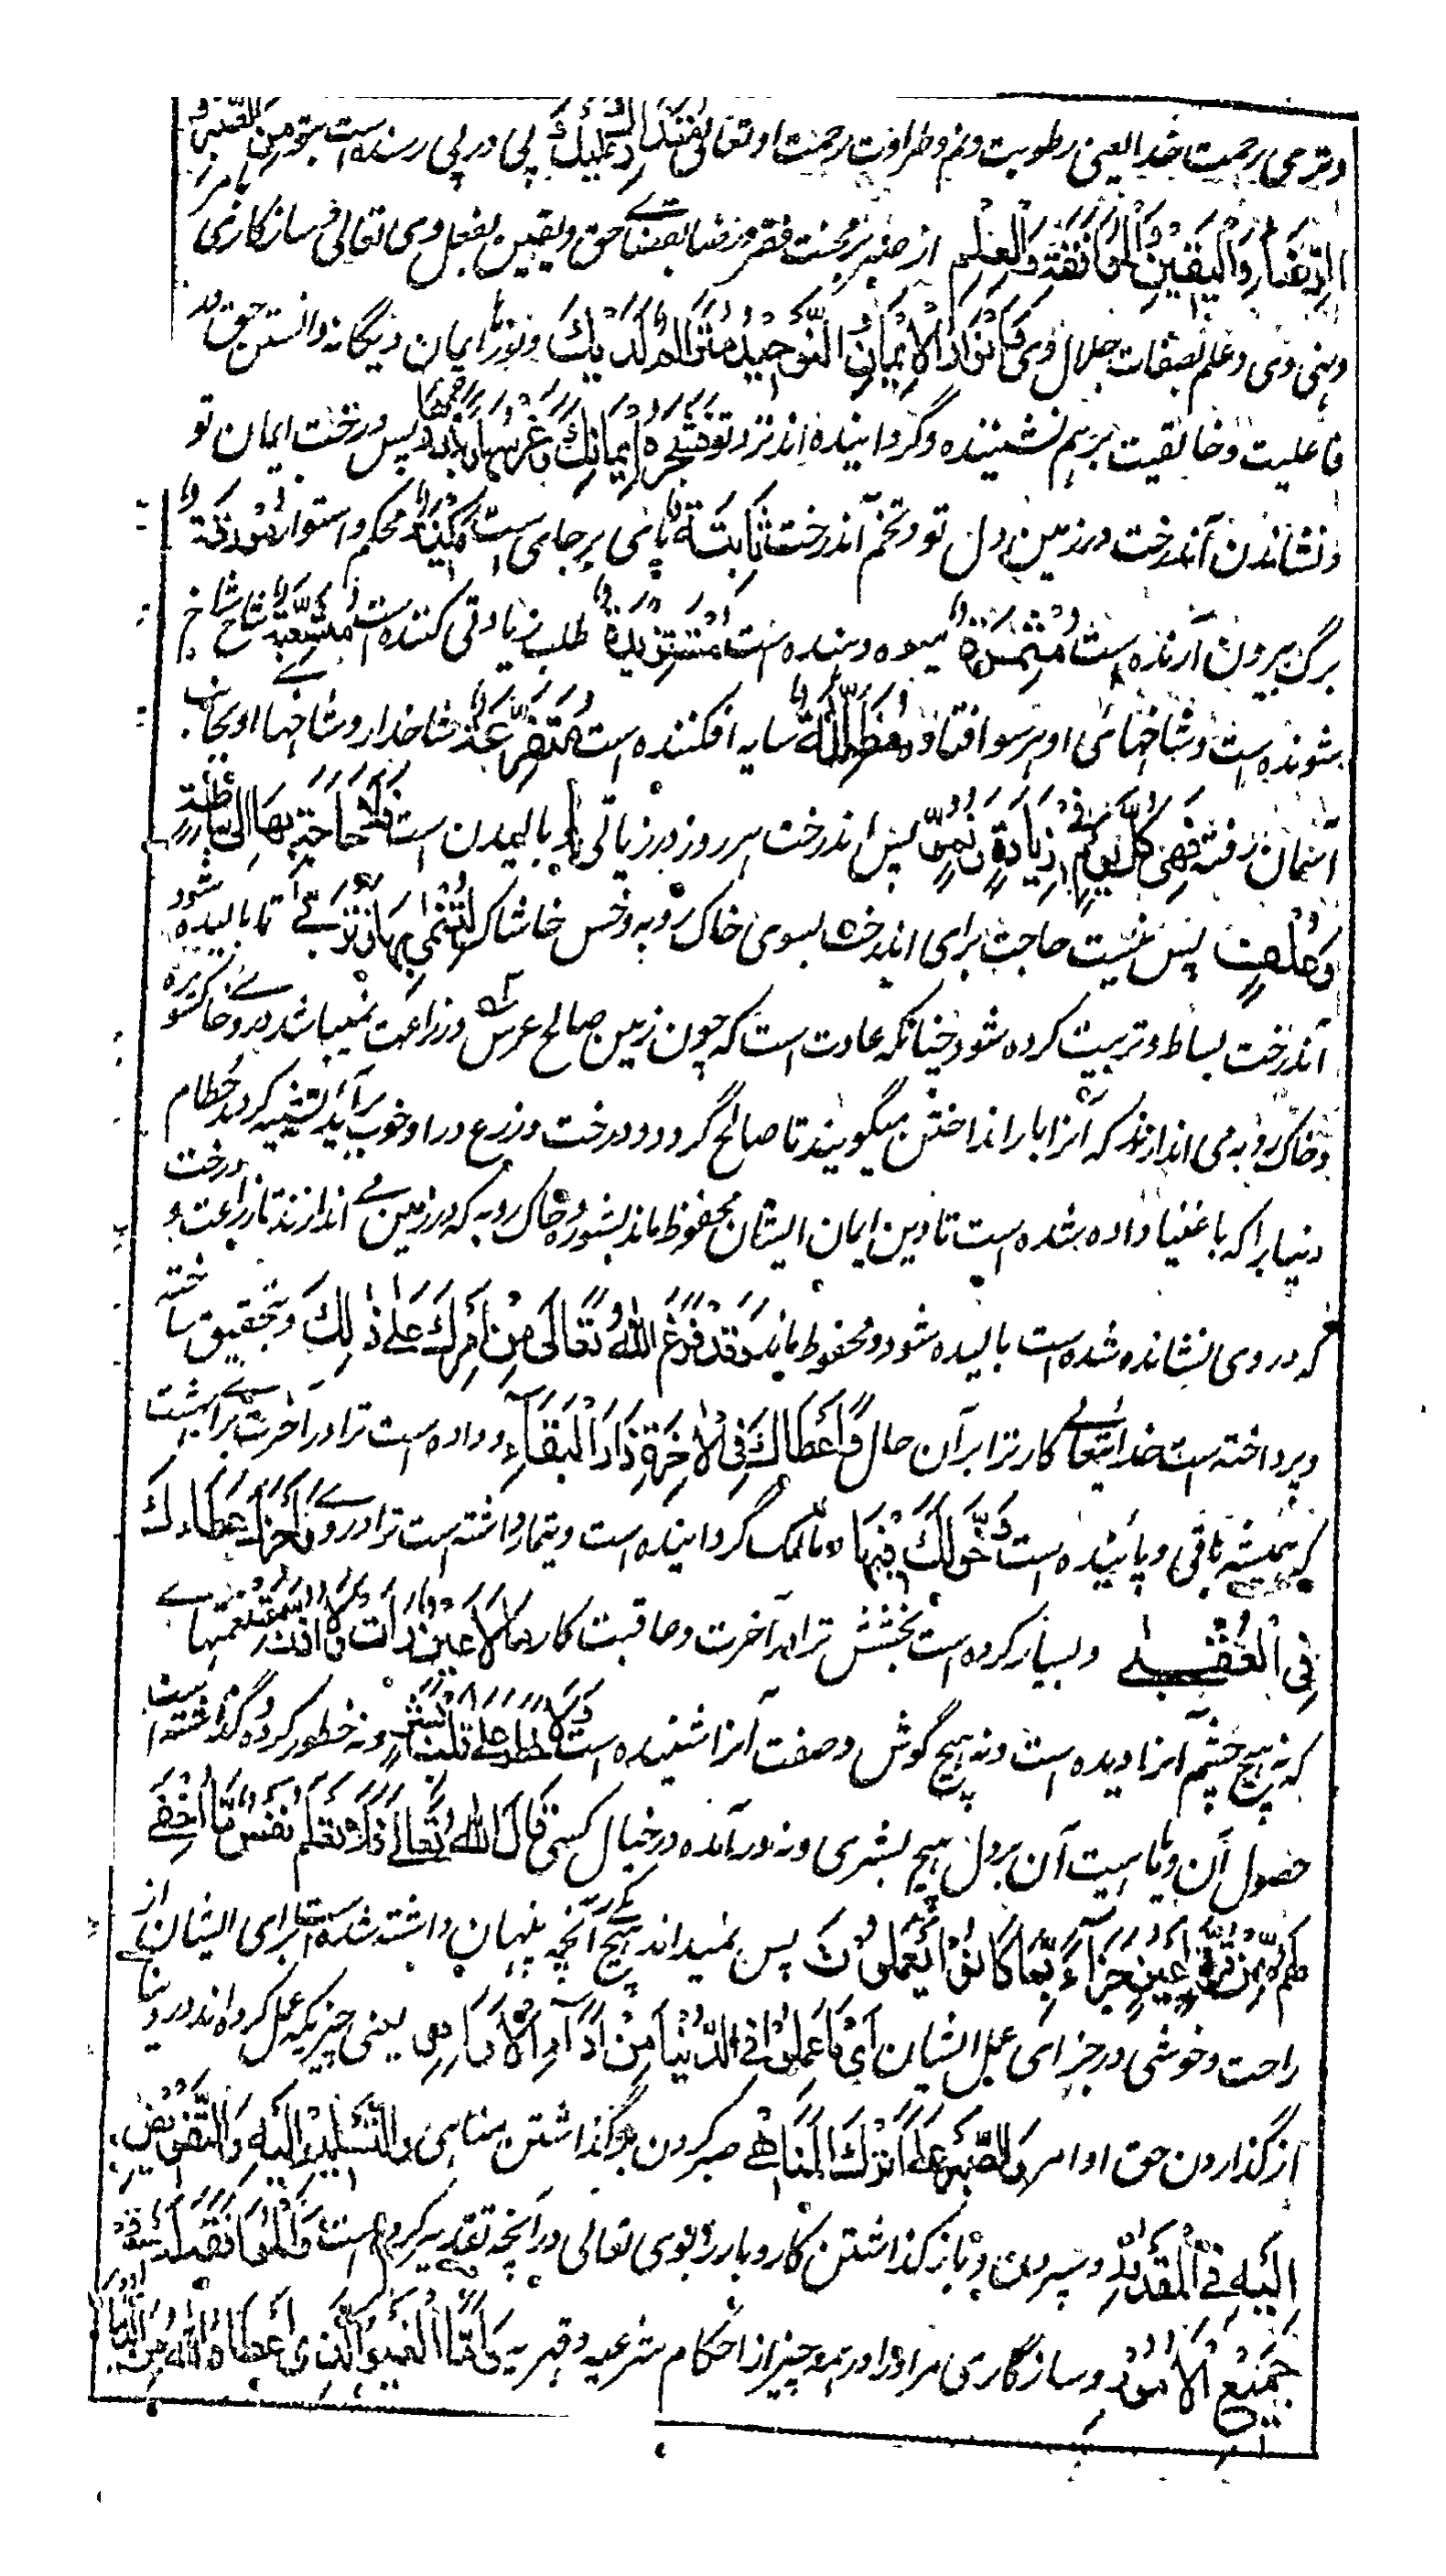 و تری رحمت خدا یعنی رطوبت و نم و طراوت رحمت او تعالی متدارك الیك پی در پی رسنده است بتو من الصبر و
الرضاء والیقین والموافقة والعلم از صبر بر محنت فقر و رضا بقضای حق و یقین بفعل وی تعالی و سازگاری بامر
و نهی وی و علم بصفات جلال وی و انوار الایمان والتوحید متراکم لدیك و نورها ایمان و یگانه دانستن حق در
فاعلیت و خالقیت برهم نشیننده و گرداینده اند نزد تو فشجرة ایمانك وغرسها وبذرها پس درخت ایمان تو
و نشاندن آندرخت در زمین دل تو و تخم آندرخت ثابتة پای بر جای است مکینة محکم و استوار مورقة
برگ بیرون آرنده است مثمرة میوه دهنده است متزیدة طلب زیادتی کننده است متشعبة شاخ شاخ
شونده است و شاخهای او هر سو افتاده مظللة سایه افکننده است متفرعة شاخدار و شاخها او بجانب
آسمان رفته فهی کل یوم فی زیادة ونمو پس اندرخت هر روز در زیادتی و بالیدن است فلا حاجة بها الی سباطة
وعلف پس نیست حاجت برای اندرخت بسوی خاک روبه و خس خاشاک لتنمی بها وتربی تا بالیده شود
آندرخت بساط و تربیت کرده شود چنانکه عادت است که چون زمین صالح غرس و زراعت نمیباشد در و خاکستر
و خاک روبه می اندازند که آنرا بار انداختن میگویند تا صالح گردد و درخت و زرع در او خوب برآید تشبیه کردند حطام
دنیا را که باغنیا داده شده است تا دین ایمان ایشان محفوظ ماند بشوره و خاک روبه که در زمین می اندازند تا زراعت و درخت
که در وی نشانده شده است بالیده شود و محفوظ ماند وقد فرغ الله تعالی من امرك علی ذلك و بتحقیق ساخته
و پرداخته است خدایتعالی کار ترا بر آن حال واعطاك فی الآخرة دار البقاء و داده است ترا در آخرت سرای بهشت
که همیشه باقی و پاینده است وخولك فیها و مالک گردانیده است و تیمار داشته است ترا در وی واجزل عطاءك
فی العقبی و بسیار کرده است بخشش ترا در آخرت و عاقبت کار مما لا عین رأت ولا اذن سمعت نعمتهای
که نه هیچ چشم آنرا دیده است و نه هیچ گوش وصفت آنرا شنیده است ولا خطر علی قلب بشر و نه خطور کرده و گذشته است
حصول آن و ماهیت آن بر دل هیچ بشری و نه در آمده در خیال کسی قال الله تعالی فلا تعلم نفس ما اخفی
لهم من قرة اعین جزاء بما کانوا یعملون پس نمیداند هیچ یکی آنچه پنهان داشته شده است برای ایشان از
راحت و خوشی در جزای عمل ایشان ای ما عملوا فی الدنیا من اداء الاوامر یعنی چیزیکه عمل کرده اند در دنیا
از گذاردن حق اوامر والصبر علی ترك المناهی صبر کردن بر گذاشتن مناهی والتسلیم الیه والتفویض
الیه فی المقدور و سپردن و باز گذاشتن کار و بار را بوی تعالی در آنچه تقدیر کرده است والموافقة له فی
جمیع الامور و سازگاری مر او را در همه چیز از احکام شرعیه و قهریه واما الغیر الذی اعطاه الله من الدنیا